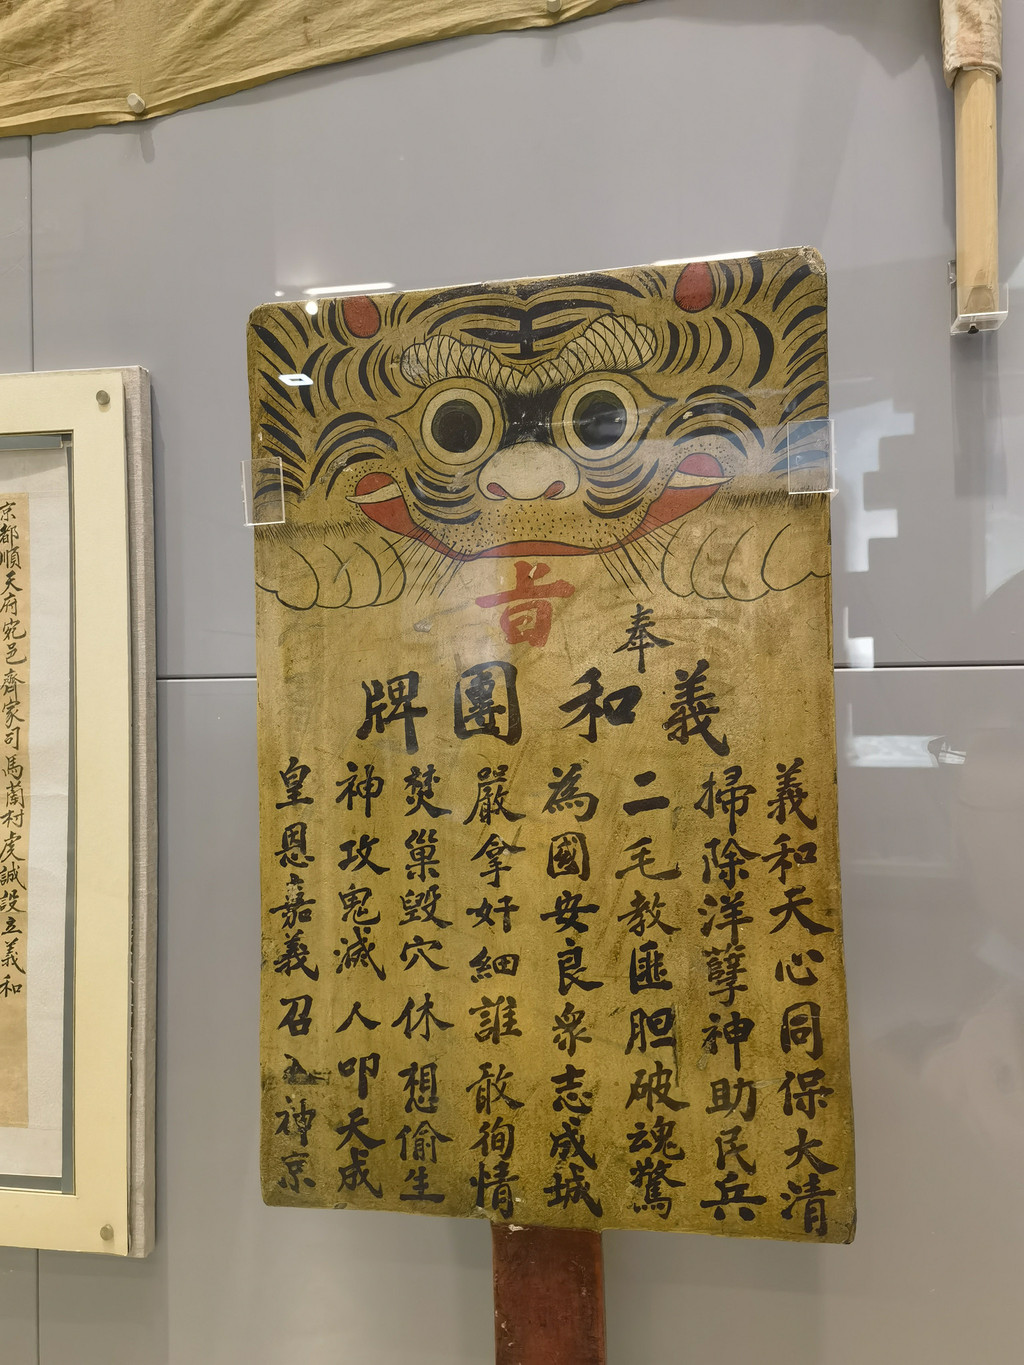 奉
旨
義和團牌
義和天心同保大清
掃除洋孽神助民兵
二毛教匪胆破魂驚
為國安良衆志成城
嚴拿奸細誰敢徇情
焚巢毀穴休想偷生
神攻鬼滅人叩天成
皇恩嘉義召入神京
京都順天府宛邑齊家司馬蘭村虎誠設立義和